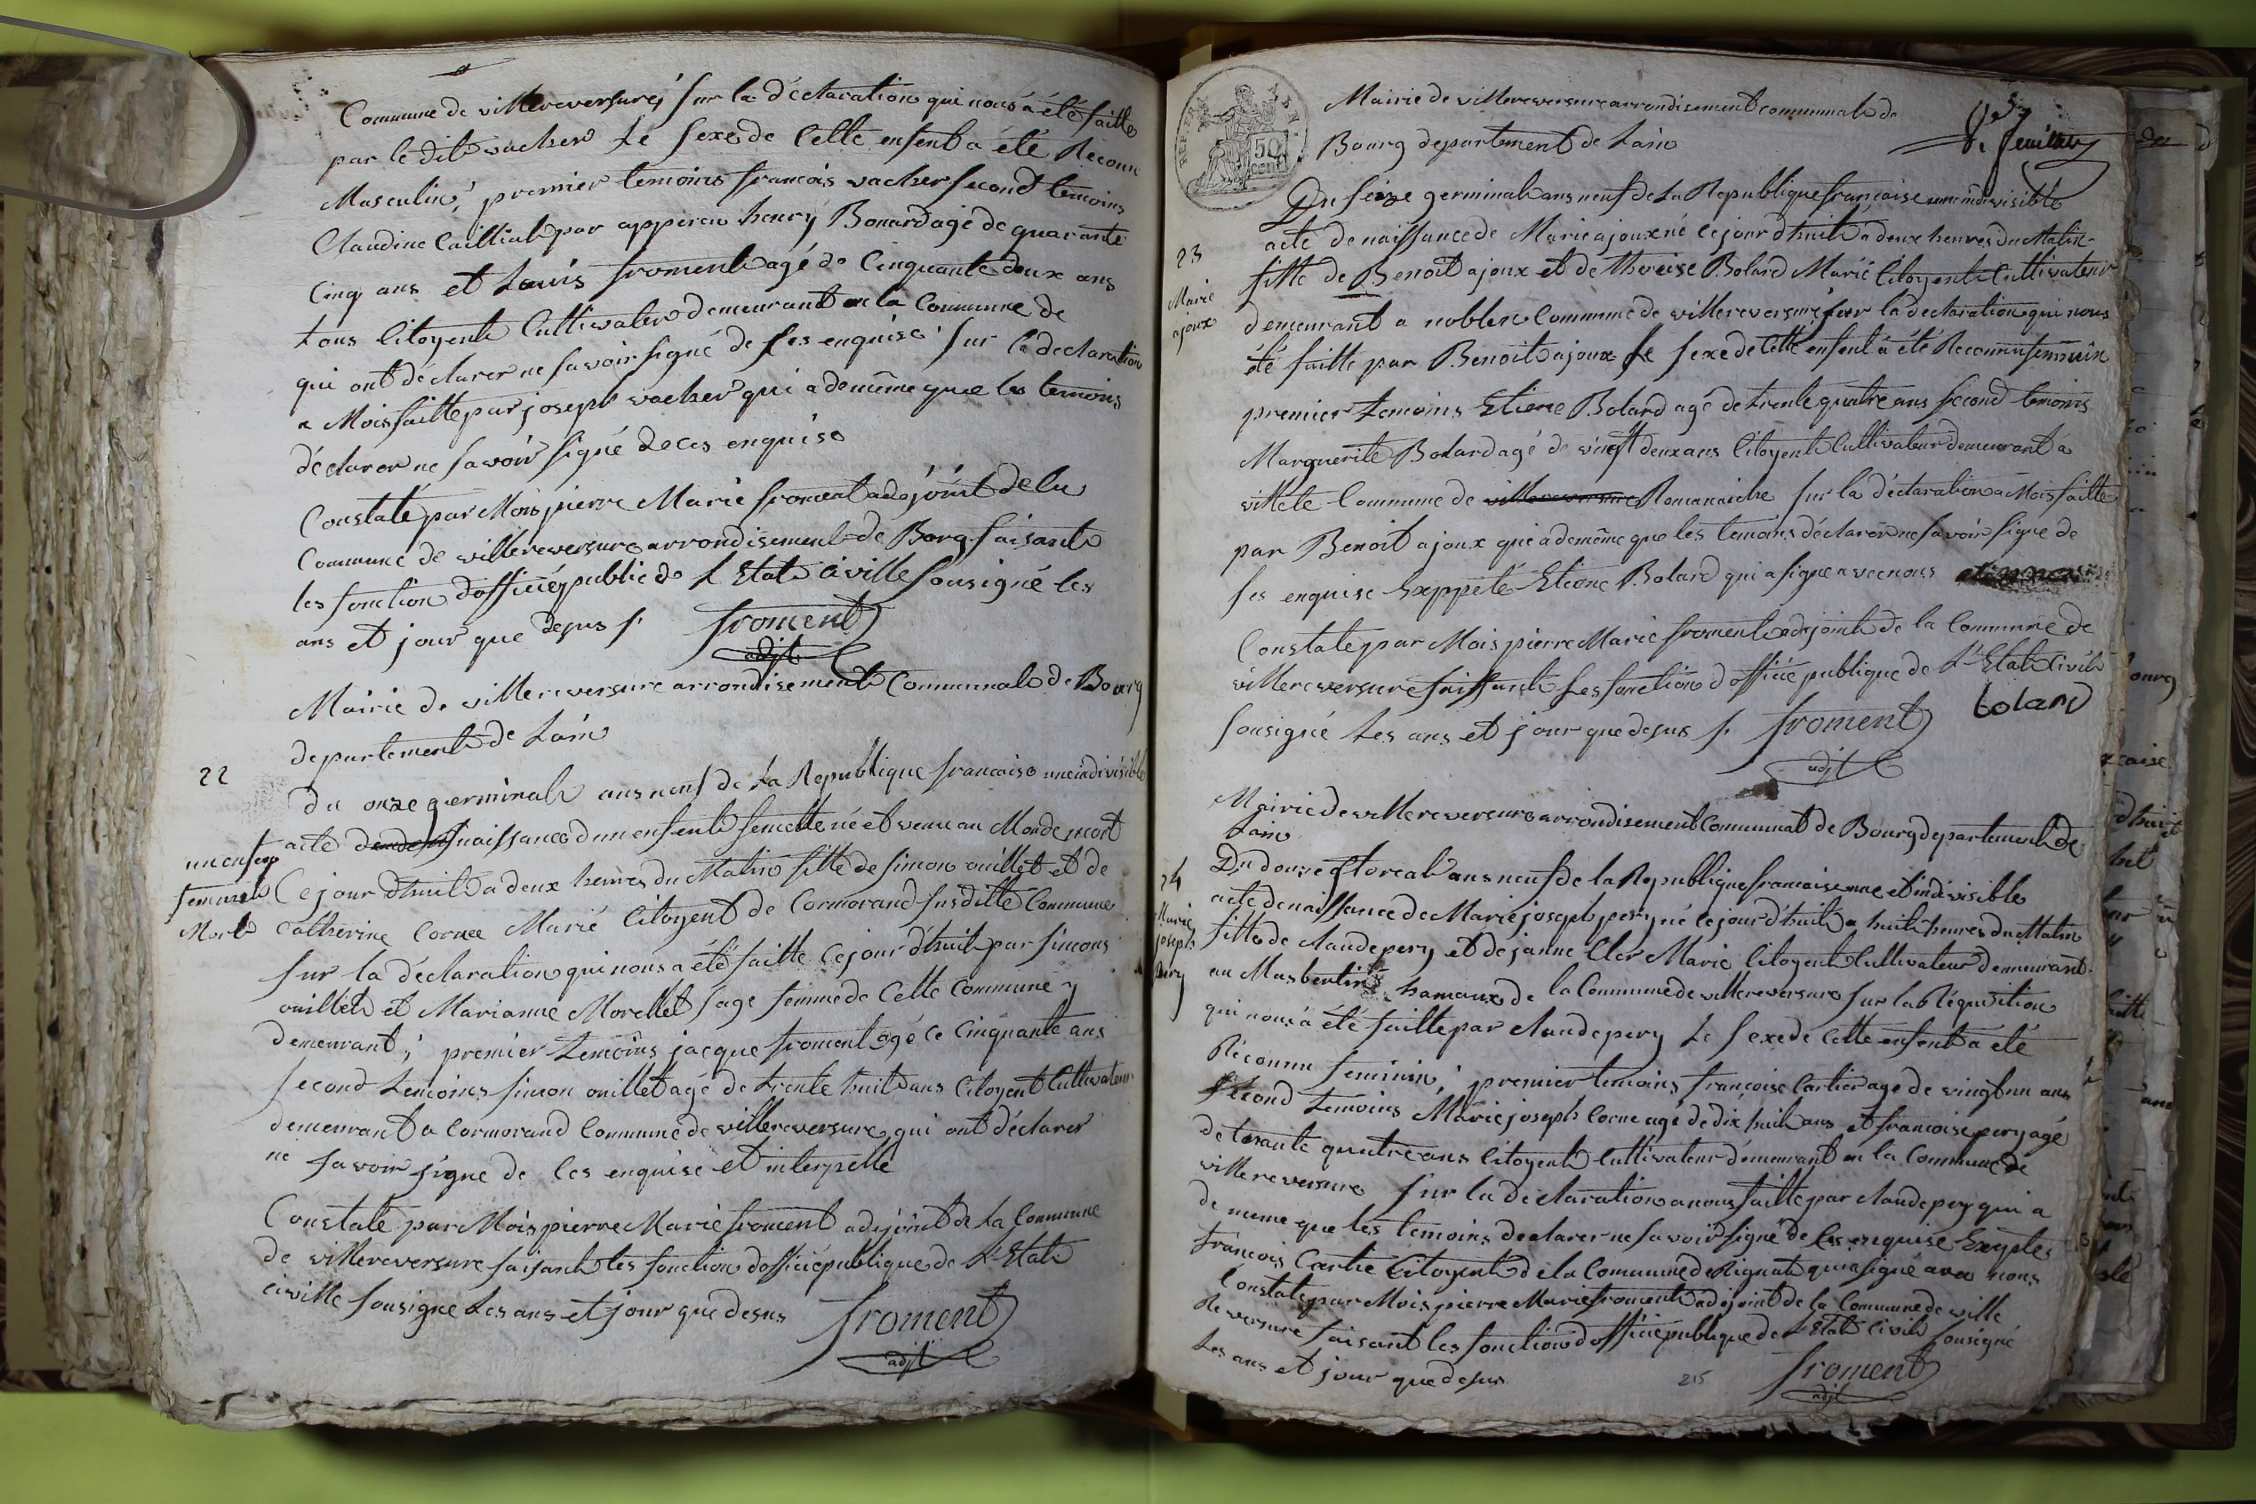 Commune de villereversure, sur la déclaration qui nous a été faitte
par le dit vacher Le sexe de Cette enfent a été Reconu
Masculin; premier temoins francois vacher second temoins
Claudine Cailliat par apperçu henry Bonard agé de quarante
Cinq ans et Louis froment agé de Cinquante deux ans
tous Citoyent Cultivateur demeurant en la Commune de
qui ont déclarer ne savoir signé de ses enquise sur la declaration
a Mois faitte par joseph vacher qui a de même que les temoins
déclarer ne savoir signé de ces enquise
Constaté par Mois pierre Marie froment adejoint de la
Commune de villereversure arrondisement de Borg faisant
les fonction d'officié public de L'Etat Civille sousigné les
ans et jour que depus s. froment
adjt
Mairie de villereversure arrondisement Communale de Bourg
departement de Lain
22
du onze germinale ans neuf de La Republique francaise une indivisible
un enfent
feminin
Mort
acte de naissance d'un enfent femelle né et venu au Monde mort
Ce jour d'huit a deux heures du Matin fille de simon ouillet et de
Catherine Cornee Marié Citoyent de Cormorand susditte Commune
sur la déclaration qui nous a été faitte Ce jour d'huit par simons
ouillet et Marianne Morellet sage femme de Cette Commune y
demeurant; premier temoins jacque froment agé Ce Cinquante ans
second temoins simon ouillet agé de trente huit ans Citoyent Cultivateur
demeurant a Cormorand Commune de villereversure qui ont déclarer
ne savoir signe de Ces enquise et interpellé
Constaté par Mois pierre Marie froment adejoint de La Commune
de villereversure faisant les fonction d'officié publique de L'Etat
civille sousigne Les ans et jour que desus froment
adjt
REP FRA
50 cent
Mairie de villereversure arrondisement communale de
Bourg departement de Lain
feuillet
23
Marie
ajoux
Du seize germinale ans neuf de La Republique francaise une indivisible
acte de naissance de Marie ajoux né Ce jour d'huit a deux heures du Matin
fille de Benoit ajoux et de therese Bolard Marié Citoyent Cultivateur
demeurant a noblen Commune de villereversure sur la declaration qui nous
été faitte par Benoit ajoux Le sexe de Cette enfent a été Reconnu feminin
premier temoins Etiene Bolard agé de trente quatre ans second temoins
Marguerite Bolard agé de vingt deux ans Citoyent Cultivateur demeurant a
villete Commune de villereversure Romanaiche sur la déclaration a Mois faitte
par Benoit ajoux qui a de même que les temoins déclarer ne savoir signe de
ses enquise Exppeté Etiene Bolard qui a signe avec nous
Constate par Mois pierre Marie froment adejoint de la Commune de
villereversure faissant Les fonction d'officié publique de L'Etat Civile
sousigné Les ans et jour que desus s. froment bolard
adjt
Mairie de villereversure arrondisement Communal de Bourg departement de
Lain
24
Marie
joseph
Pery
Du douze floreal ans neuf de la Republique francaise une et indivisible
acte de naissance de Marie joseph pery né Ce jour d'huit a huit heures du Matin
fille de claude pery et de janne Cler Marié Citoyent Cultivateur demeurant
au Masbentin hamaux de la Commune de villereversure sur la Réquisition
qui nous a été faitte par claude pery Le sexe de Cette enfent a été
Réconnu feminin; premier temoins francoise Cartier age de vingt un ans
second temoins Marie joseph Corne agé de dix huit ans et francoise pery agé
de torante quatre ans Citoyent Cultivateur demeurant en la Commune de
villereversure sur la déclaration a nous faitte par claude pery qui a
de meme que les temoins declarer ne savoir signé de Ces enquise Exeptes
francois Cartie Citoyent de la Commune de Rignat qui a signé avec nous
Constate par Mois pierre Marie froment adejoint de la Commune de ville
Reversure faisant les fonction d'officié publique de L'Etat Civile sousigné
Les ans et jour que desus froment
adjt
215